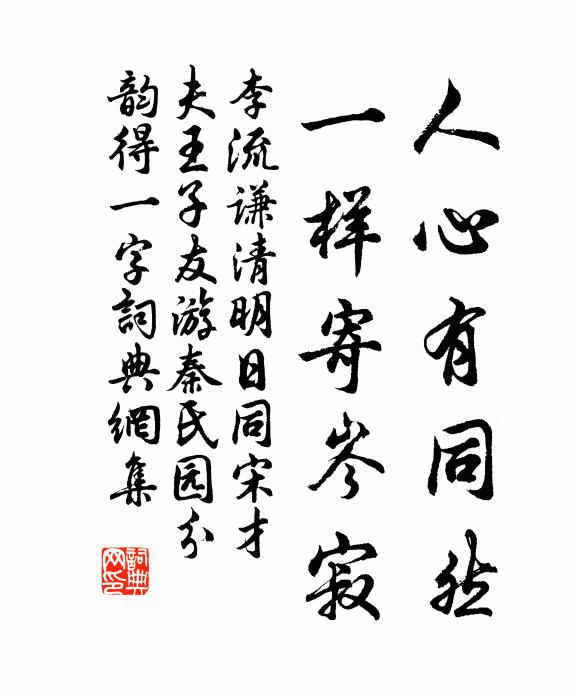 人心有同然
一样寄岑寂
李流谦清明日同宋才
夫王子友游秦民园分
韵得一字詞典網集
詞典网印